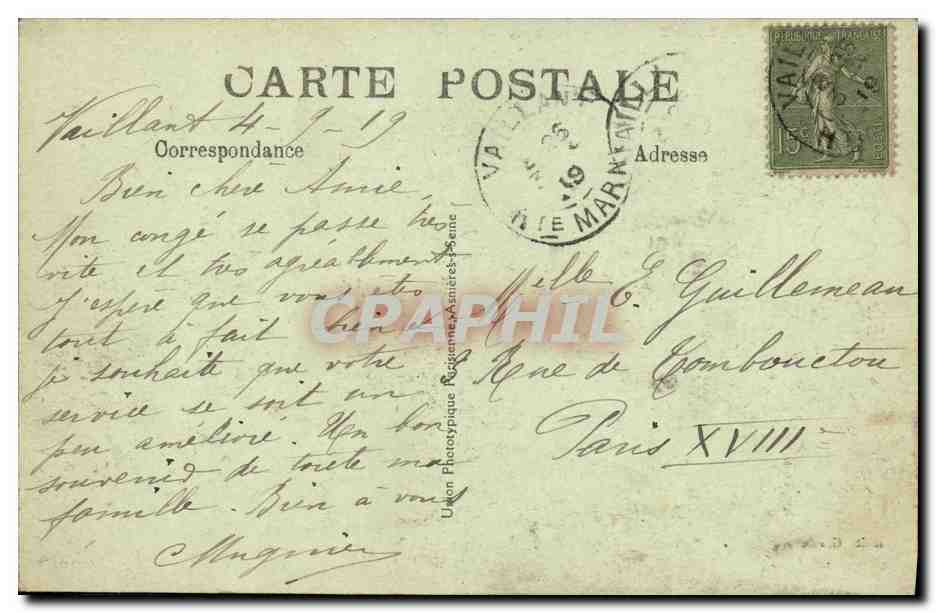 CARTE POSTALE
RÉPUBLIQUE FRANÇAISE
15c
POSTES
VAILLANT
Hte MARNE
19
Vaillant 4-9-19
Correspondance
Bien chère Amie,
Mon congé se passe très
vite et très agréablement
J'espère que vous êtes
tout à fait bien et
je souhaite que votre
service se soit un
peu amélioré. Un bon
souvenir de toute ma
famille. Bien à vous
Mugnier
Union Phototypique Parisienne, Asnières-s-Seine
Adresse
Melle E. Guillemeau
Rue de Tombouctou
Paris XVIIIe
CPAPHIL